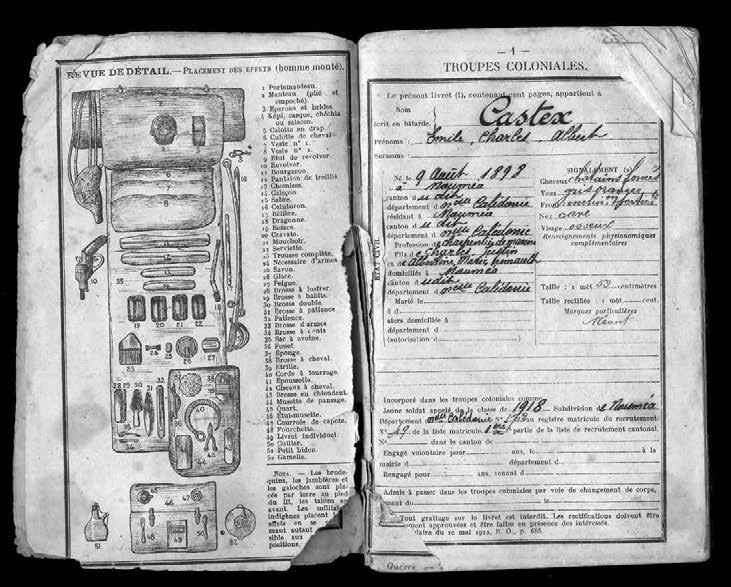 REVUE DE DÉTAIL. — PLACEMENT DES EFFETS (homme monté).
1 Portemanteau.
2 Manteau (plié et
empoché).
3 Eperons et brides.
4 Képi, casque, chéchia
ou salacco.
5 Calotte en drap.
6 Culotte de cheval
7 Veste n° 1.
8 Veste n° 2.
9 Etui de revolver.
10 Revolver.
11 Bourgeron.
12 Pantalon de treillis
13 Chemises.
14 Caleçon.
15 Sabre.
16 Ceinturon.
17 Bélière.
18 Dragonne.
19 Besace.
20 Cravate.
21 Mouchoir.
22 Serviette.
23 Trousse complète.
24 Nécessaire d'armes
25 Savon.
26 Glace.
27 Peigne.
28 Brosse à lustrer.
29 Brosse à habits.
30 Brosse double.
31 Brosse à patience
32 Patience.
33 Brosse d'armes
34 Brosse à
35 Sac à avoine.
36 Fouet
37 Eponge.
38 Brosse à cheval.
39 Etrille.
40 Corde à fourrage.
41 Epoussette.
42 Ciseaux à cheval.
43 Brosse en chiendent.
44 Musette de pansage.
45 Quart.
46 Etui-musette.
47 Courroie de capote.
48 Fourchette.
49 Livret individuel.
50 Cuiller.
51 Petit bidon.
52 Gamelle.
NOTA. — Les brode-
quins, les jambières et
les galoches sont pla-
cés par terre au pied
du lit, les talons
avant. Les
indigènes placent
effets en se
mant autant
sible aux
positions.
— 1 —
TROUPES COLONIALES.
Le présent livret (1), contenant cent pages, appartient à
Nom
écrit en bâtarde. Castex
Prénoms : Emile, Charles, Albert
Surnoms :
Né le 9 Août 1898
à Nouméa
canton d u dit
département d Nelle Calédonie
résidant à Nouméa
canton d u dit
département d Nelle Calédonie
Profession de charpentier de marine
Fils de Charles Justin
et d Albertine Marie
domiciliés à Nouméa
canton d udit
département d Nelle Calédonie
Marié le
à d
alors domiciliée à
département d
(autorisation d )
ÉTAT CIVIL
SIGNALEMENT (2)
Cheveux châtains foncés
Yeux gris oranger
Front
Nez cave
Visage osseux
Renseignements physionomiques
complémentaires
Taille : 1 mèt centimètres
Taille rectifiée : 1 mèt. cent.
Marques particulières
Néant
Incorporé dans les troupes coloniales comme
Jeune soldat appelé de la classe de 1918 - Subdivision d e Nouméa
Département Nelle Calédonie N° au registre matricule du recrutement
N° 49 de la liste matricule. 1ère partie de la liste de recrutement cantonal
N° dans le canton de
Engagé volontaire pour ans, le à la
mairie d département d
Rengagé pour ans, venant d
Admis à passer dans les troupes coloniales par voie de changement de corps,
venant du le
Tout grattage sur le livret est interdit. Les rectifications doivent être
approuvées et être faites en présence des intéressés.
du 10 mai 1912, B. O., p. 688.
Guerre